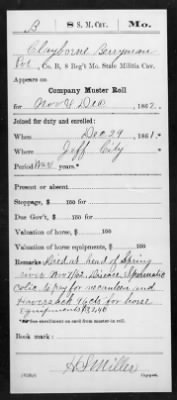 B 8 S. M. Cav. Mo.
Clayborne Berryman
Pvt., Co. B, 8 Reg't Mo. State Militia Cav.
Appears on
Company Muster Roll
for Nov & Dec, 1862.
Joined for duty and enrolled:
When Dec 29, 1861.*
Where Jeff City
Period War years.*
Present or absent
Stoppage, $ 100 for
Due Gov't, $ 100 for
Valuation of horse, $ 100
Valuation of horse equipments, $ 100
Remarks: Died at head of Spring
river Nov 7/62. Disease Spasmodic
Colic to pay for 1 canteen and
Haversack 96 cts for horse
equipments $32.40
*See enrollment on card from muster-in roll.
Book mark:
H S Miller
Copyist.